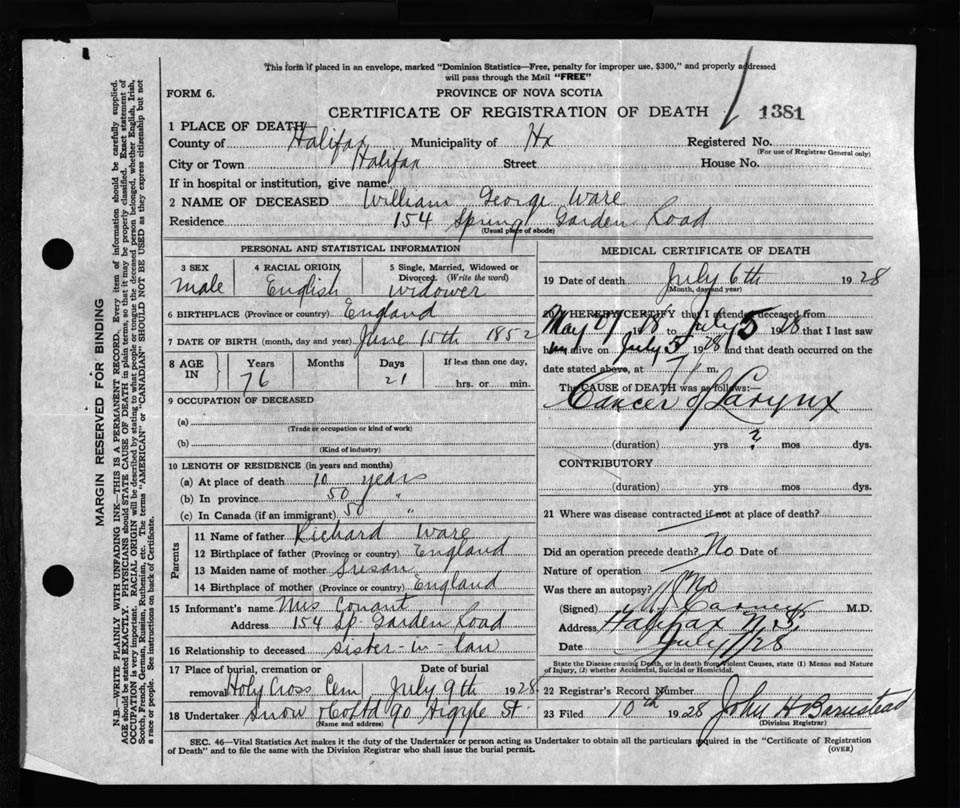 This form if placed in an envelope, marked "Dominion Statistics—Free, penalty for improper use, $300," and properly addressed
will pass through the Mail "FREE"
FORM 6.
PROVINCE OF NOVA SCOTIA
CERTIFICATE OF REGISTRATION OF DEATH 1381
1 PLACE OF DEATH
County of Halifax Municipality of Hx Registered No.
(For use of Registrar General only)
City or Town Halifax Street House No.
If in hospital or institution, give name
2 NAME OF DECEASED William George Ware
Residence 154 Spring Garden Road
(Usual place of abode)
PERSONAL AND STATISTICAL INFORMATION
3 SEX male
4 RACIAL ORIGIN English
5 Single, Married, Widowed or
Divorced. (Write the word)
widower
6 BIRTHPLACE (Province or country) England
7 DATE OF BIRTH (month, day and year) June 15th 1852
8 AGE IN Years Months Days If less than one day,
76 21 hrs. or min.
9 OCCUPATION OF DECEASED
(a)
(Trade or occupation or kind of work)
(b)
(Kind of industry)
10 LENGTH OF RESIDENCE (in years and months)
(a) At place of death 10 years
(b) In province 50 "
(c) In Canada (if an immigrant) 50 "
Parents
11 Name of father Richard Ware
12 Birthplace of father (Province or country) England
13 Maiden name of mother Susan
14 Birthplace of mother (Province or country) England
15 Informant's name Mrs Conant
Address 154 Sp. Garden Road
16 Relationship to deceased sister-in-law
17 Place of burial, cremation or Date of burial
removal Holy Cross Cem July 9th 1928
18 Undertaker Snow & Co Ltd 90 Argyle St
(Name and address)
MEDICAL CERTIFICATE OF DEATH
19 Date of death July 6th 1928
(Month, day and year)
20 I HEREBY CERTIFY that I attended deceased from
May 29 28 to July 5 1928 that I last saw
him alive on July 5 1928 and that death occurred on the
date stated above, at m.
The CAUSE OF DEATH was as follows:
Cancer of Larynx
(duration) yrs ? mos dys.
CONTRIBUTORY
(duration) yrs mos dys.
21 Where was disease contracted if not at place of death?
Did an operation precede death? No Date of
Nature of operation
Was there an autopsy? No
(Signed) M.D.
Address Halifax N.S.
Date July 28
State the Disease causing Death, or in death from Violent Causes, state (1) Means and Nature
of Injury, (2) whether Accidental, Suicidal or Homicidal.
22 Registrar's Record Number
23 Filed 10th 1928 John H Barnstead
(Division Registrar)
SEC. 46—Vital Statistics Act makes it the duty of the Undertaker or person acting as Undertaker to obtain all the particulars required in the "Certificate of Registration
of Death" and to file the same with the Division Registrar who shall issue the burial permit.
(OVER)
MARGIN RESERVED FOR BINDING
N.B.—WRITE PLAINLY WITH UNFADING INK—THIS IS A PERMANENT RECORD. Every item of information should be carefully supplied.
AGE should be stated EXACTLY. PHYSICIANS should STATE CAUSE OF DEATH in plain terms, so that it may be properly classified. Exact statement of
OCCUPATION is very important. RACIAL ORIGIN will be described by stating to what people or tongue the deceased person belonged, whether English, Irish,
Scotch, French, German, Russian, Ruthenian, etc. The terms "AMERICAN" or "CANADIAN" SHOULD NOT BE USED as they express citizenship but not
a race or people. See instructions on back of Certificate.